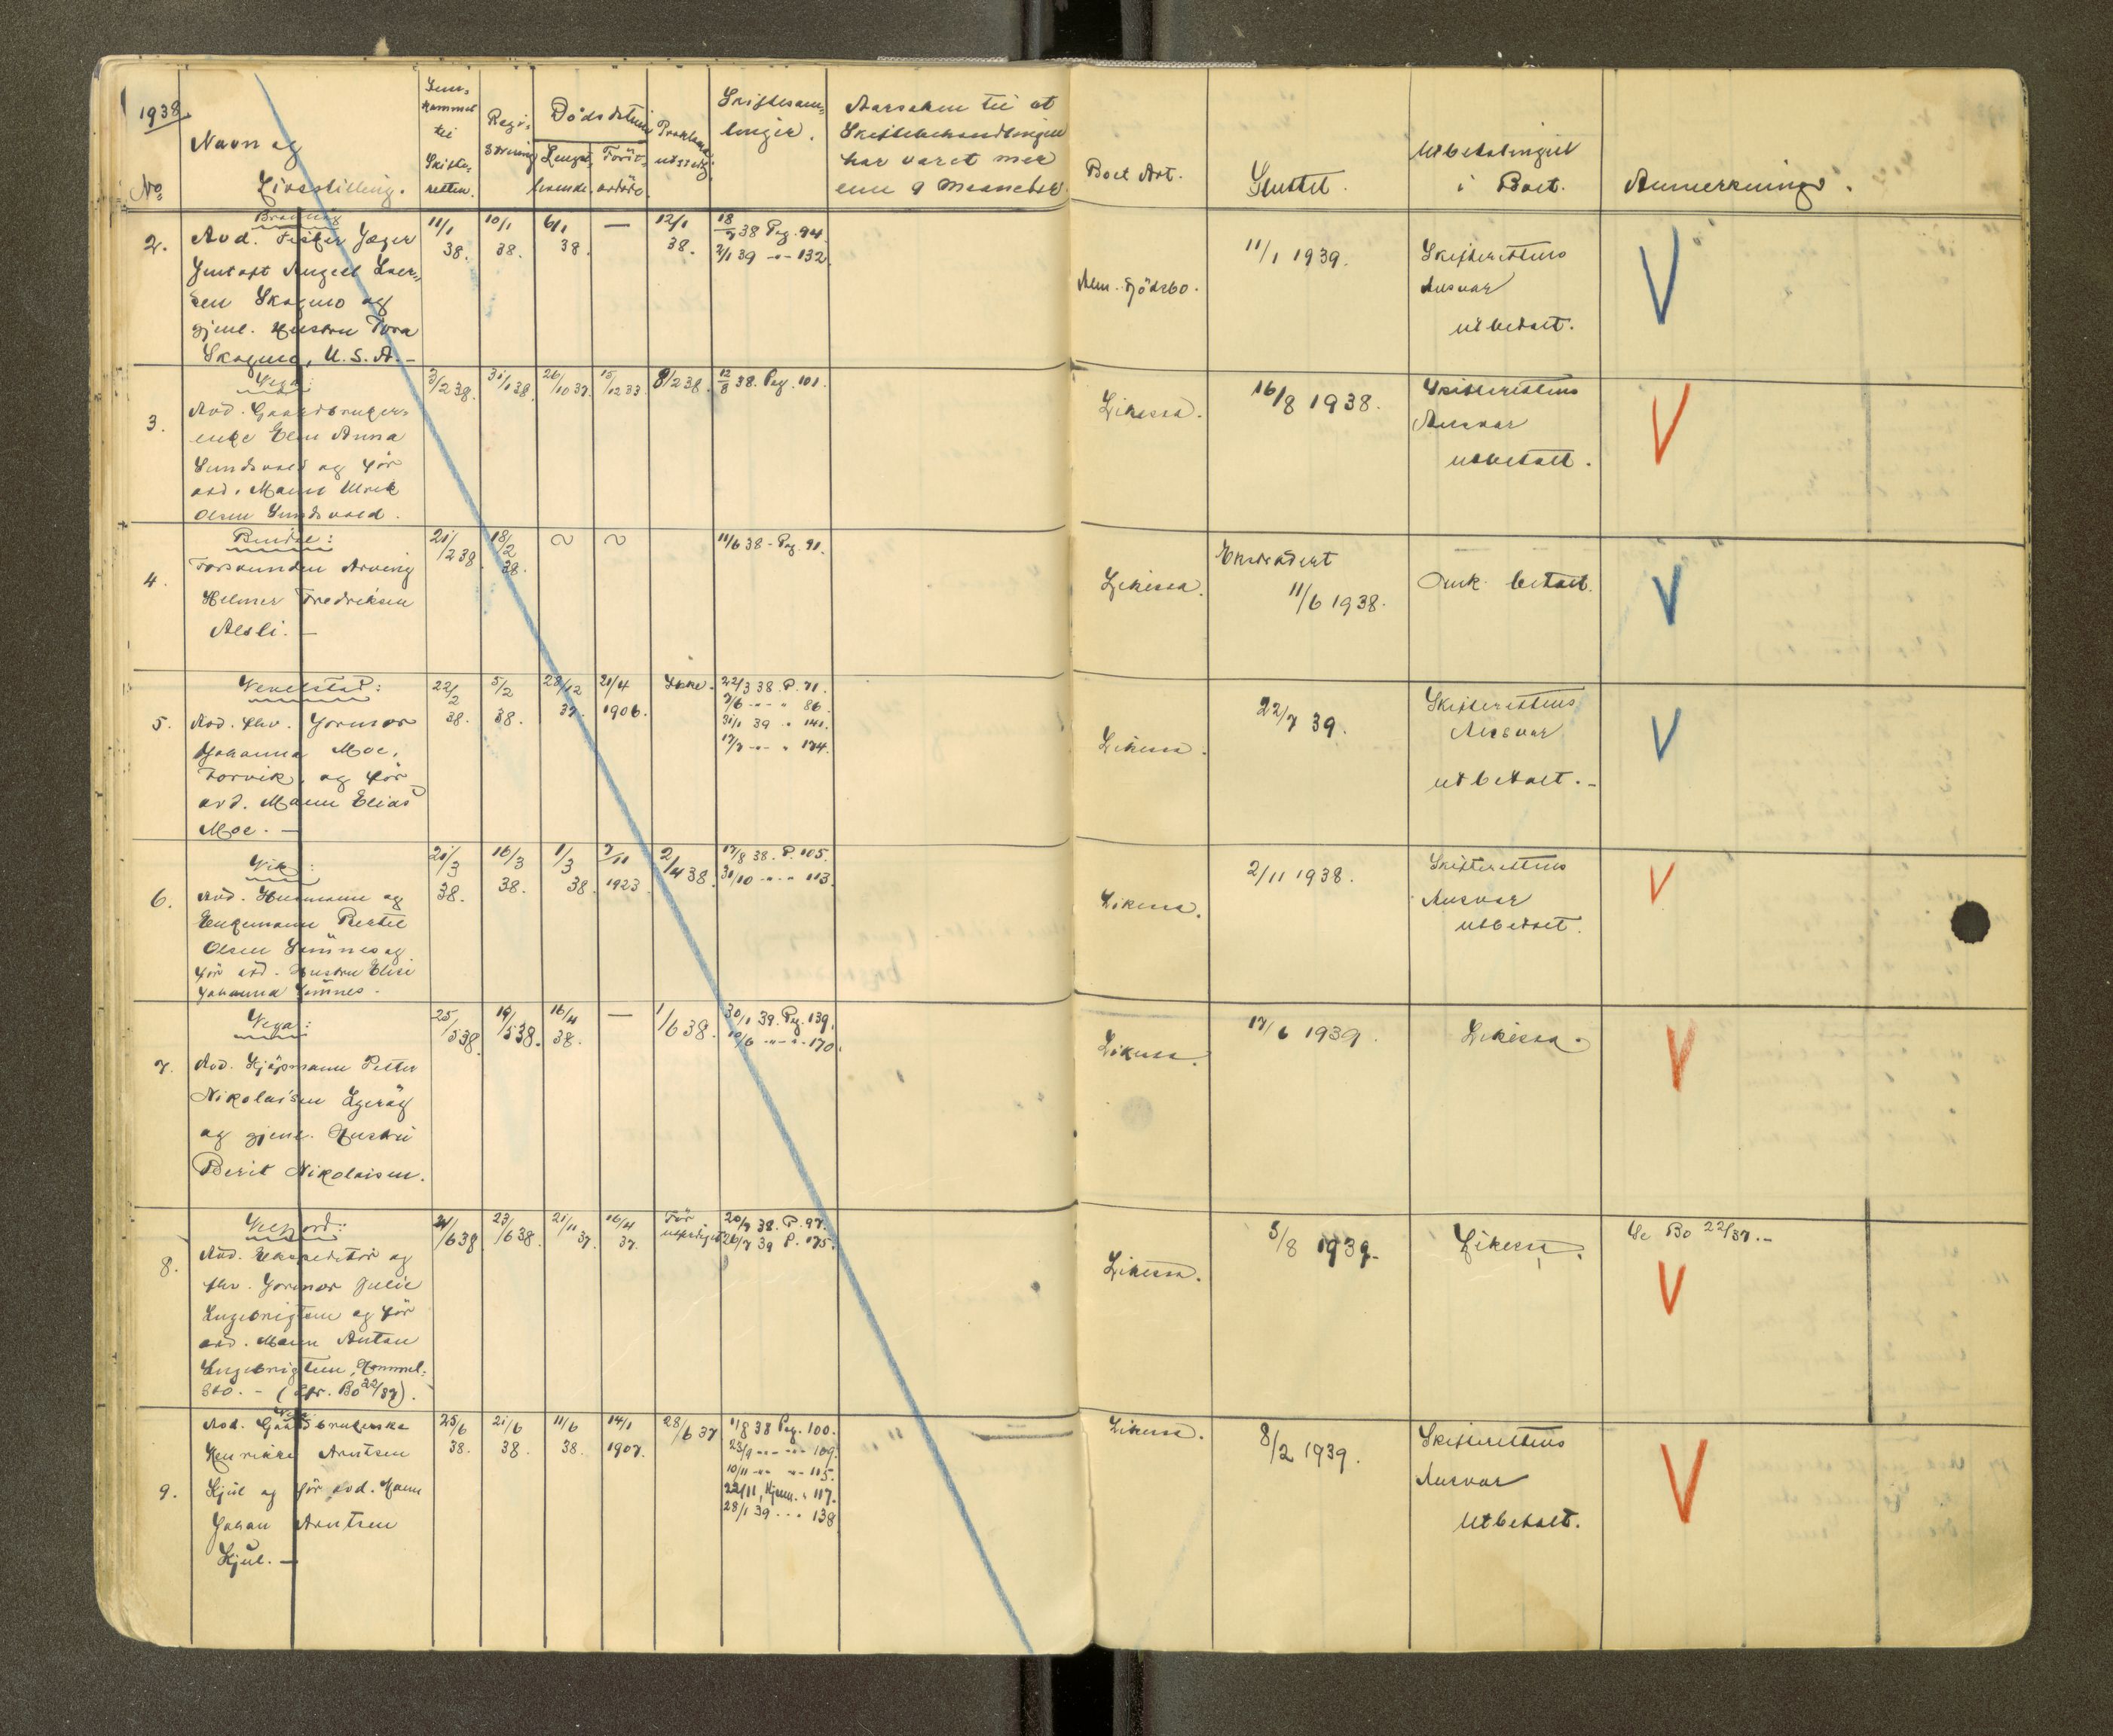 1938
No
Navn og
Livsstilling.
Inn-
kommet
til
Skifte-
retten.
Regi-
strering
Dødsdatum
Lengst-
levende.
Først-
avdøde.
Proklama
utstedt.
Skiftesam-
linger.
Aarsaken til at
Skiftebehandlingen
har varet mer
enn 9 Maaneder.
Boet Art.
Sluttet.
Utbetalinger
i Boet.
Anmerkninger.
2.
Brønnøy
Avd. Fisker Jæger
Gustaft Angell Laer-
sen Skogmo og
gjenl. Hustru Tora
Skogmo, U.S.A. -
11/1
38.
10/1
38.
6/1
38.
—
12/1
38.
18/7 38 Pag. 94.
2/1 39 -"- 132.
Alm. Dødsbo.
11/1 1939.
Skifterettens
Ansvar
utbetalt.
V
3.
Vega:
Avd. Gaardbruger-
enke Elen Anna
Sundsvold og før
avd. Mann Ulrik
Olsen Sundsvold.
3/2 38.
31/1 38.
26/10 37.
15/12 33.
8/2 38.
12/8 38. Pag. 101.
Likessa.
16/8 1938.
Skifterettens
Ansvar
utbetalt.
V
4.
Bindal:
Forsvunden Arving
Helmer Fredriksen
Aesli. —
21/2 38.
18/2
38.
~
~
11/6 38 - Pag. 91.
Likessa.
Ekstradert
11/6 1938.
Omk. betalt.
V
5.
Vevelstad:
Avd. fhv. Jormor
Johanna Moe,
Forvik, og før
avd. Mann Elias
Moe. —
22/2
38.
5/2
38.
28/12
37.
21/4
1906.
Ikke.
22/3 38. P. 71.
7/6 -"- " 86.
31/1 39 " 141.
17/7 -"- " 174.
Likessa.
22/7 39.
Skifterettens
Ansvar
utbetalt. -
V
6.
Vik:
Avd. Husmann og
Enkemann Bertel
Olsen Sømnes og
før avd. Hustru Elise
Johanna Sømnes.
21/3
38.
16/3
38.
1/3
38.
7/11
1923.
2/4 38.
17/8 38. P. 105.
31/10 -"- " 113.
Likessa.
2/11 1938.
Skifterettens
Ansvar
utbetalt.
V
7.
Vega:
Avd. Kjøpmann Petter
Nikolaisen Ygerøy
og gjenl. Hustru
Berit Nikolaisen.
25/5 38.
19/5 38.
16/4
38.
—
1/6 38.
30/1 39. Pag. 139.
10/6 -"- " 170.
Likessa.
17/6 1939.
Likessa.
V
8.
Velfjord:
Avd. Ekspeditør og
fhv. Jormor Julie
Ingebrigtsen og før
avd. Mann Anton
Ingebrigtsen, Hommel-
stø. - (Jfr. Bo 22/37).
24/6 38.
23/6 38.
21/11
37.
16/4
37.
Før
utferdiget
20/7 38. P. 97.
26/7 39 P. 175.
Likessa.
5/8 1939.
Likessa.
Se Bo 22/37. -
V
9.
Vega
Avd. Gaardbrukerske
Henrikke Arntsen
Kjul og før avd. Mann
Johan Arntsen
Kjul. —
25/6
38.
21/6
38.
11/6
38.
14/1
1907.
28/6 37
11/8 38 Pag. 100.
23/9 -"- -"- 109.
10/11 -"- -"- 115.
22/11, Kjenn. " 117.
28/1 39 -"- 138.
Likessa.
8/2 1939.
Skifterettens
Ansvar
Utbetalt.
V